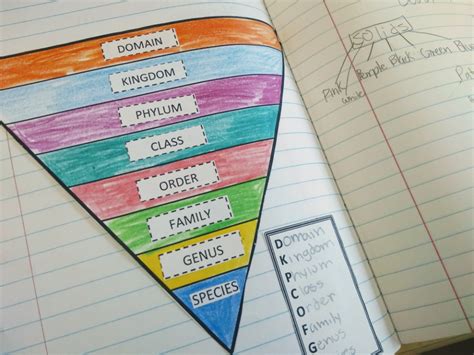 DOMAIN
KINGDOM
PHYLUM
CLASS
ORDER
FAMILY
GENUS
SPECIES
Domain
Kingdom
Phylum
Class
Order
Family
Genus
solids
Pink Purple Black Green
white